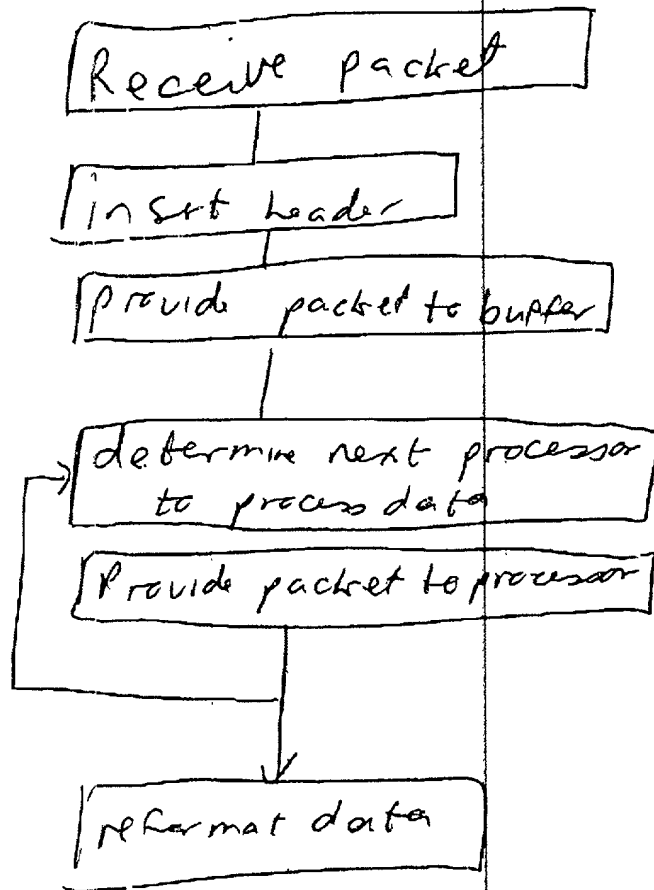 Receive packet
insert header
provide packet to buffer
determine next processor
to process data
Provide packet to processor
reformat data